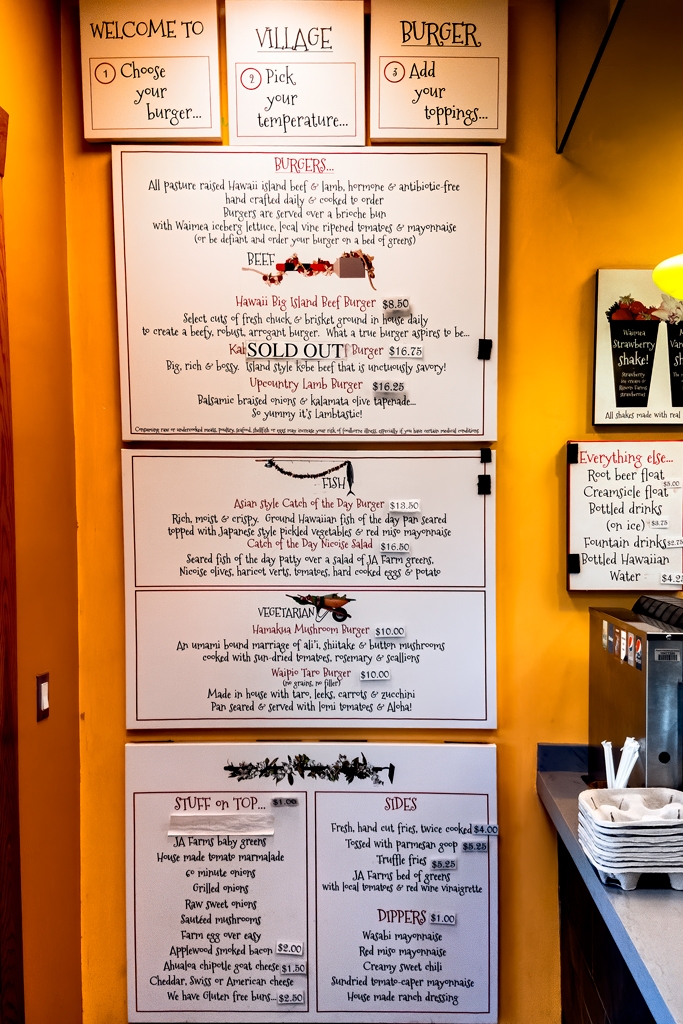 WELCOME TO
1 Choose
your
burger...
VILLAGE
2 Pick
your
temperature...
BURGER
3 Add
your
toppings...
BURGERS...
All pasture raised Hawaii island beef & lamb, hormone & antibiotic-free
hand crafted daily & cooked to order
Burgers are served over a brioche bun
with Waimea iceberg lettuce, local vine ripened tomatoes & mayonnaise
(or be defiant and order your burger on a bed of greens)
BEEF
Hawaii Big Island Beef Burger $8.50
Select cuts of fresh chuck & brisket ground in house daily
to create a beefy, robust, arrogant burger. What a true burger aspires to be...
SOLD OUT Burger $16.75
Big, rich & bossy. Island style kobe beef that is unctuously savory!
Upcountry Lamb Burger $16.25
Balsamic braised onions & kalamata olive tapenade...
So yummy it's Lambtastic!
Consuming raw or undercooked meats, poultry, seafood, shellfish or eggs may increase your risk of foodborne illness, especially if you have certain medical conditions
FISH
Asian style Catch of the Day Burger $13.50
Rich, moist & crispy. Ground Hawaiian fish of the day pan seared
topped with Japanese style pickled vegetables & red miso mayonnaise
Catch of the Day Nicoise Salad $16.50
Seared fish of the day patty over a salad of JA Farm greens,
Nicoise olives, haricot verts, tomatoes, hard cooked eggs & potato
VEGETARIAN
Hamakua Mushroom Burger $10.00
An umami bound marriage of ali'i, shiitake & button mushrooms
cooked with sun-dried tomatoes, rosemary & scallions
Waipio Taro Burger $10.00
(no grains, no filler)
Made in house with taro, leeks, carrots & zucchini
Pan seared & served with lomi tomatoes & Aloha!
STUFF on TOP... $1.00
JA Farms baby greens
House made tomato marmalade
60 minute onions
Grilled onions
Raw sweet onions
Sautéed mushrooms
Farm egg over easy
Applewood smoked bacon $2.00
Ahualoa chipotle goat cheese $1.50
Cheddar, Swiss or American cheese
We have Gluten free buns... $2.50
SIDES
Fresh, hand cut fries, twice cooked $4.00
Tossed with parmesan goop $5.25
Truffle fries $5.25
JA Farms bed of greens
with local tomatoes & red wine vinaigrette
DIPPERS $1.00
Wasabi mayonnaise
Red miso mayonnaise
Creamy sweet chili
Sundried tomato-caper mayonnaise
House made ranch dressing
Waimea
Strawberry
shake!
strawberries
All shakes made with real
Everything else...
Root beer float $5.00
Creamsicle float
Bottled drinks
(on ice) $3.75
Fountain drinks $2.75
Bottled Hawaiian
Water $4.2